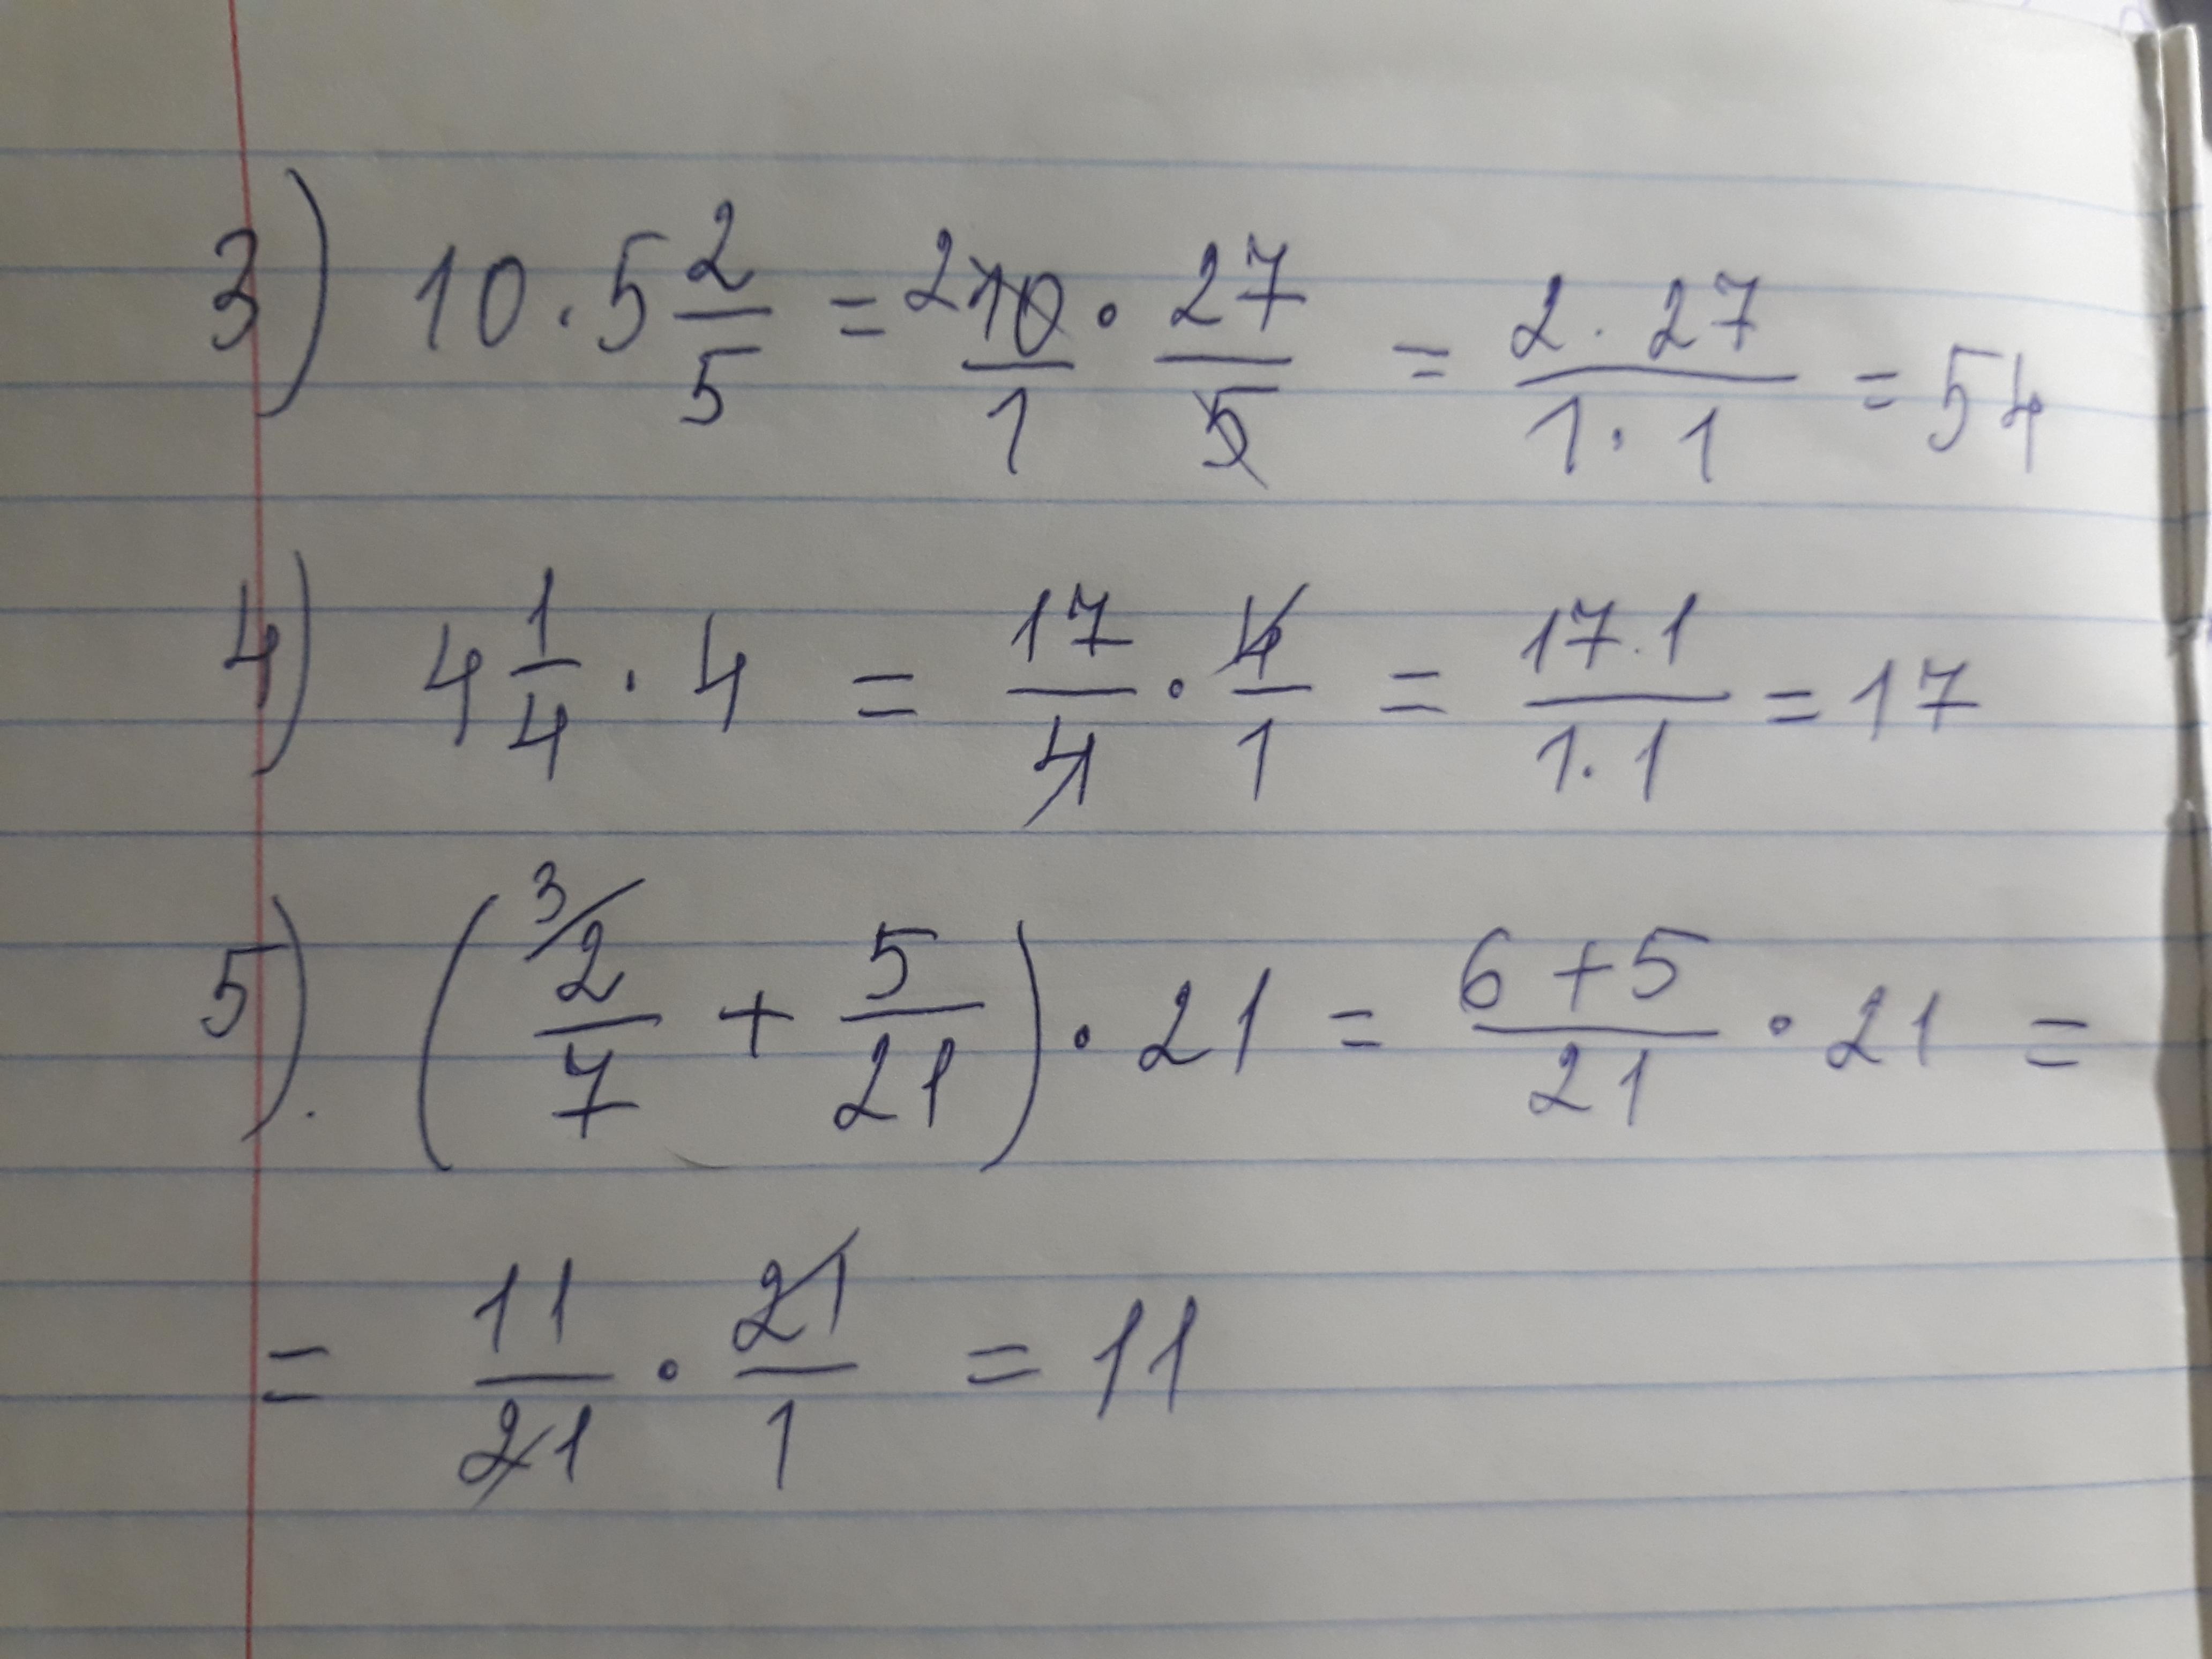 3) 10 · 5 2/5 = 2 10/1 · 27/5 = 2 · 27/1 · 1 = 54
4) 4 1/4 · 4 = 17/4 · 4/1 = 17 · 1/1 · 1 = 17
5). ( 3/ 2/7 + 5/21 ) · 21 = 6 + 5/21 · 21 =
= 11/21 · 21/1 = 11